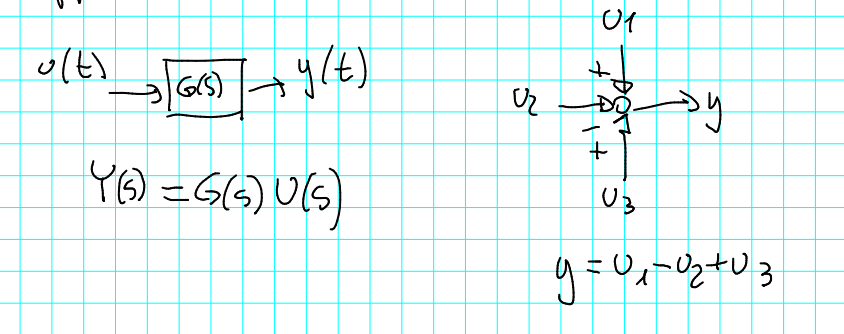 u(t) → G(s) → y(t)
Y(s) = G(s) U(s)
U1
+
U2 → y
-
+
U3
y = U1 - U2 + U3